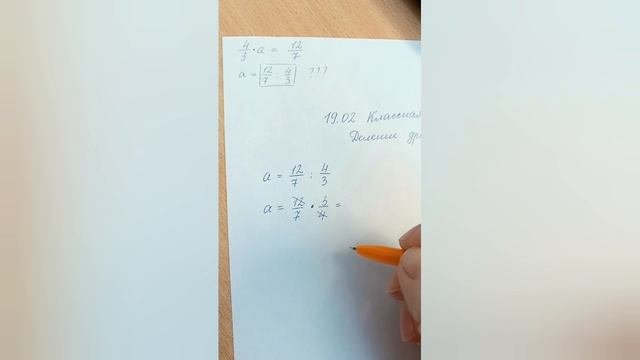 4/3 · a = 12/7
a = 12/7 : 4/3 ???
19.02 Классная
Деление др
a = 12/7 : 4/3
a = 12/7 · 3/4 =